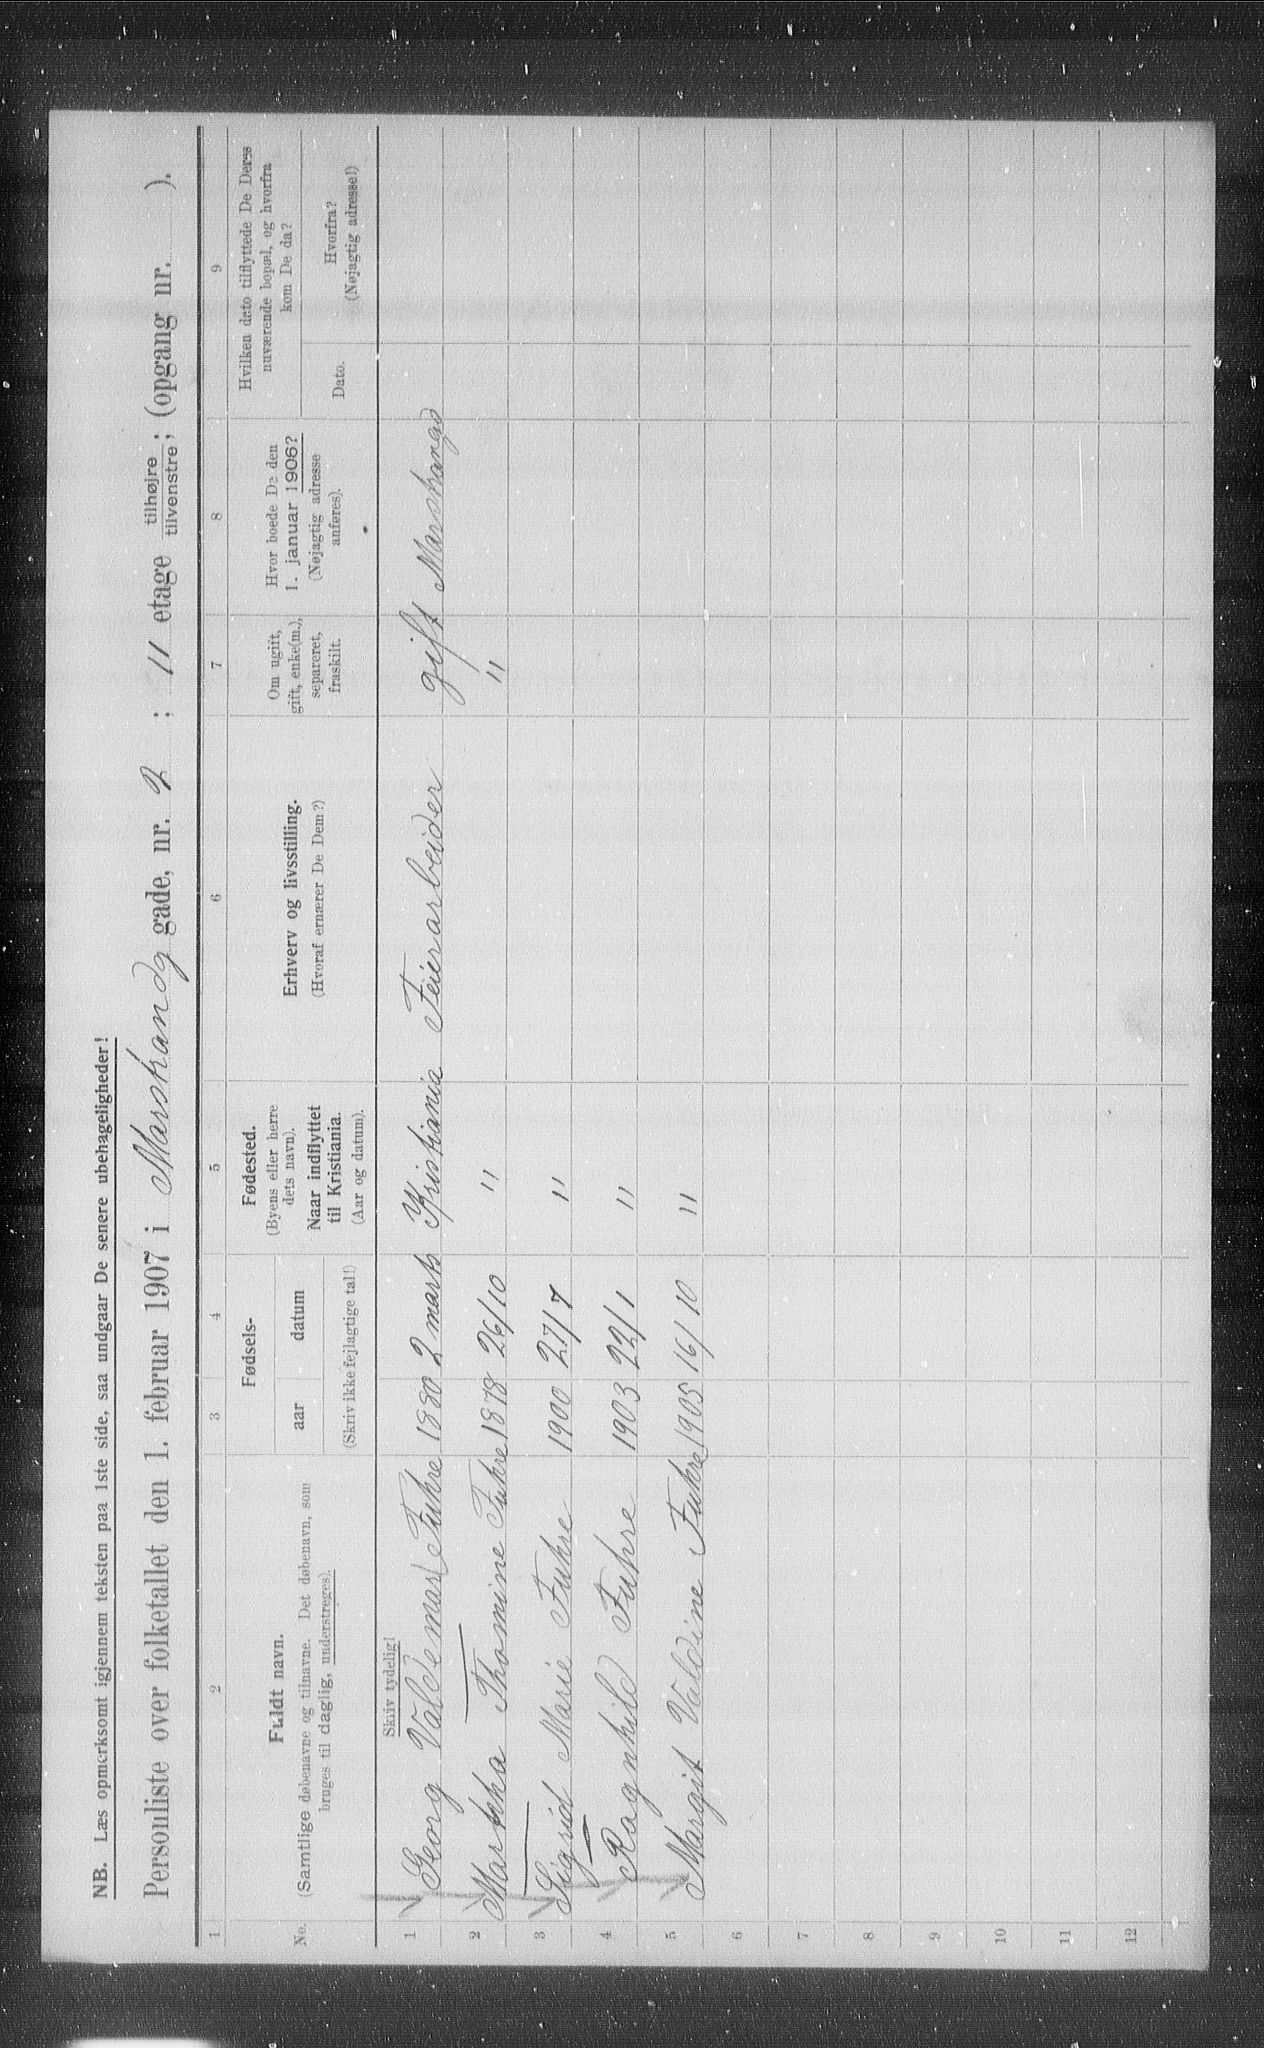 NB. Læs opmerksomt igjennem teksten paa 1ste side, saa undgaar De senere ubehageligheder!
Personliste over folketallet den 1. februar 1907 i Marskandg gade, nr. 2 ; 11 etage tilhøjre / tilvenstre; (opgang nr. ).
1 2 3 4 5 6 7 8 9
No.
Fuldt navn.
(Samtlige døbenavne og tilnavne. Det døbenavn, som
bruges til daglig, understreges).
Fødsels-
aar datum
(Skriv ikke fejlagtige tal!)
Fødested.
(Byens eller herre
dets navn).
Naar indflyttet
til Kristiania.
(Aar og datum).
Erhverv og livsstilling.
(Hvoraf ernærer De Dem?)
Om ugift,
gift, enke(m.),
separeret,
fraskilt.
Hvor boede De den
1. januar 1906?
(Nøjagtig adresse
anføres).
Hvilken dato tilflyttede De Deres
nuværende bopæl, og hvorfra
kom De da?
Dato.
Hvorfra?
(Nøjagtig adresse!)
Skriv tydelig!
1 Georg Valdemar Fuhre 1880 2 marts Kristiania Feierarbeider gift Marskangd
2 Martha Thomine Fuhre 1878 26/10 " "
3 Sigrid Marie Fuhre 1900 27/7 "
4 Ragnhild Fuhre 1903 22/1 "
5 Margit Valdine Fuhre 1905 16/10 "
6
7
8
9
10
11
12